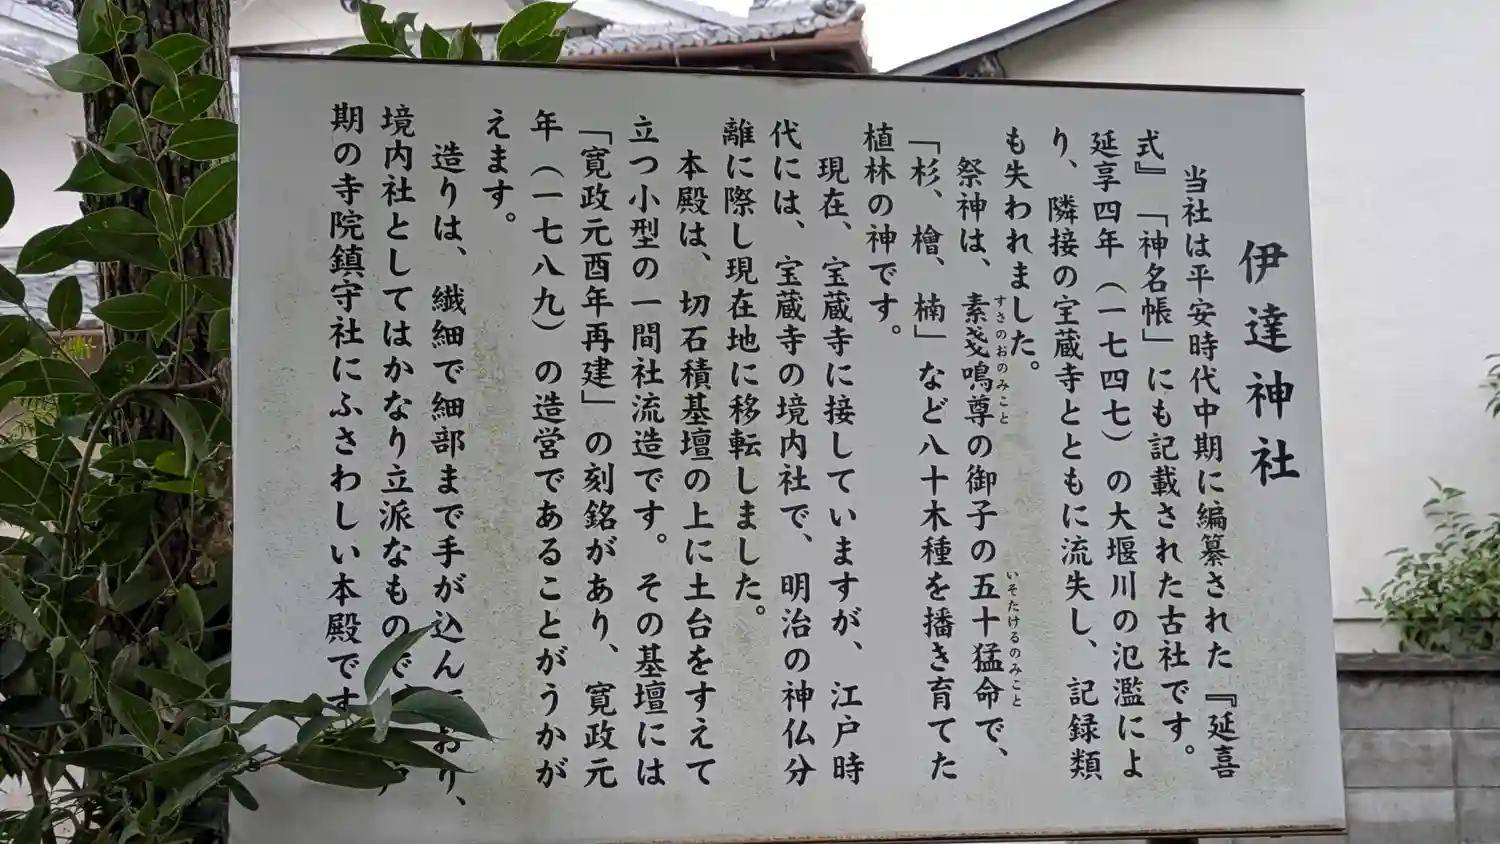 伊達神社
当社は平安時代中期に編纂された『延喜
式』「神名帳」にも記載された古社です。
延享四年（一七四七）の大堰川の氾濫によ
り、隣接の宝蔵寺とともに流失し、記録類
も失われました。
祭神は、素戔鳴尊の御子の五十猛命で、
すさのおのみこと
いそたけるのみこと
「杉、檜、楠」など八十木種を播き育てた
植林の神です。
現在、宝蔵寺に接していますが、江戸時
代には、宝蔵寺の境内社で、明治の神仏分
離に際し現在地に移転しました。
本殿は、切石積基壇の上に土台をすえて
立つ小型の一間社流造です。その基壇には
「寛政元酉年再建」の刻銘があり、寛政元
年（一七八九）の造営であることがうかが
えます。
造りは、繊細で細部まで手が込んでおり、
境内社としてはかなり立派なもので
期の寺院鎮守社にふさわしい本殿です